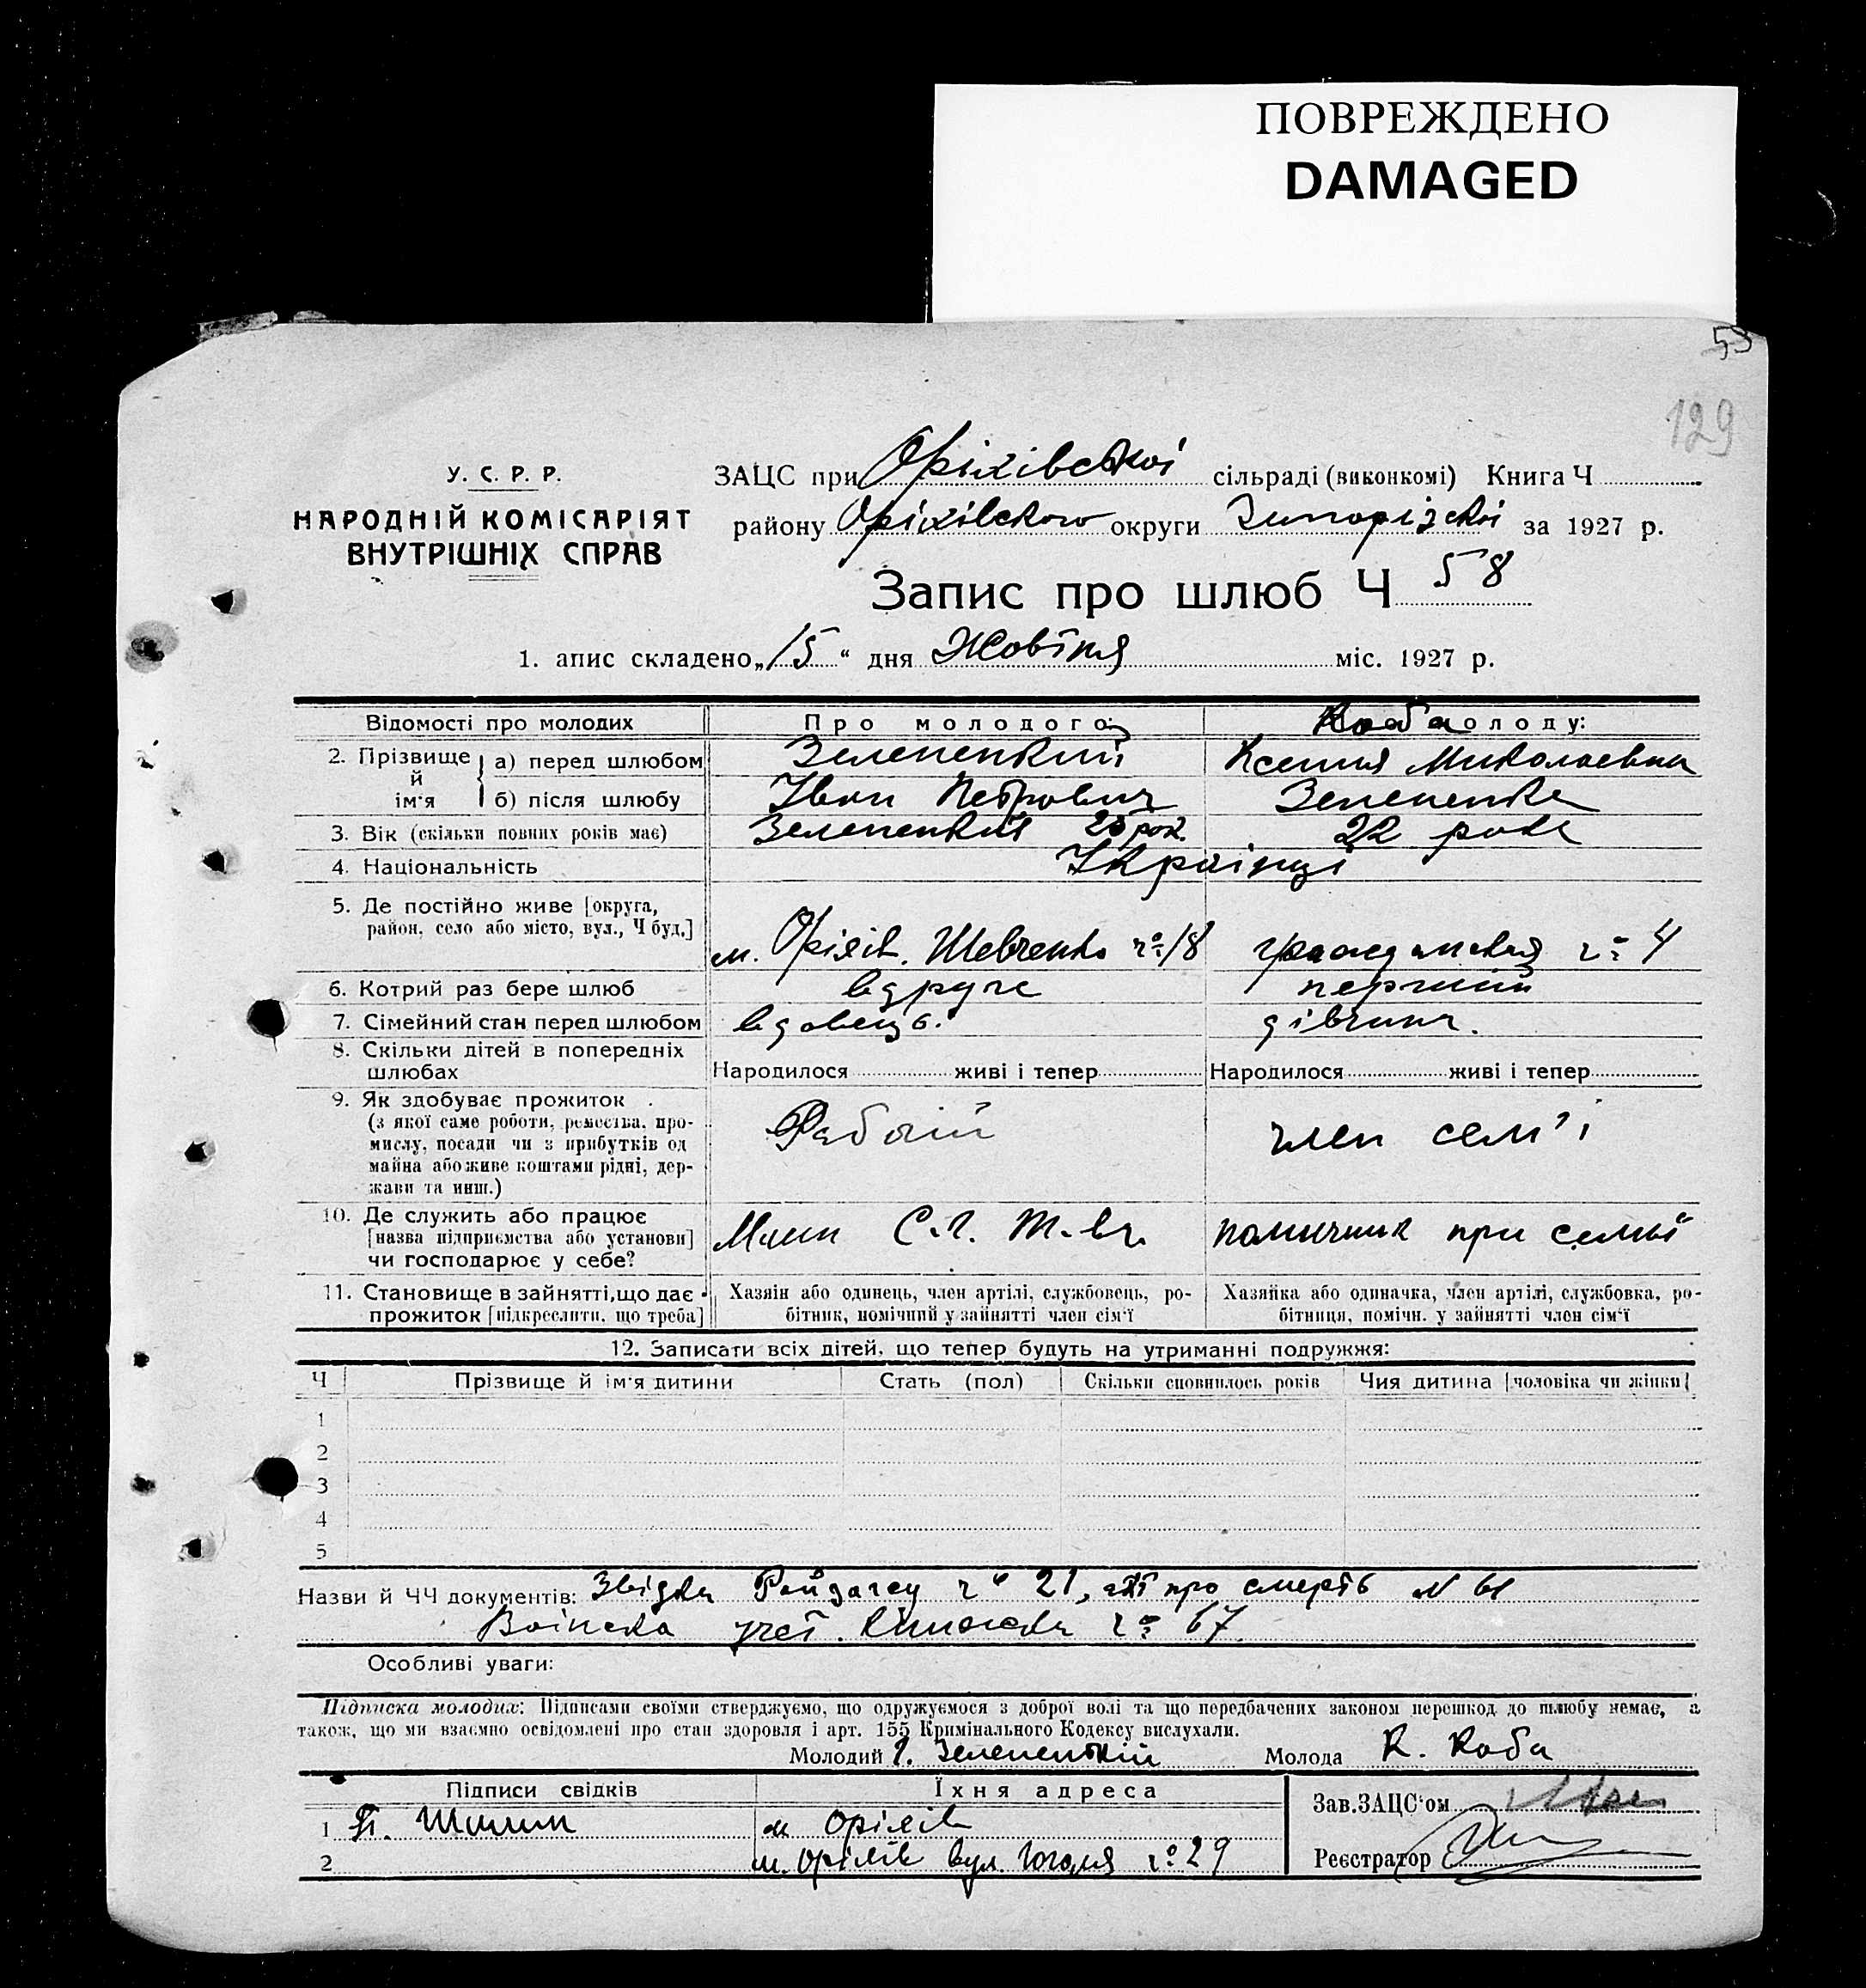 ПОВРЕЖДЕНО
DAMAGED
53
129
У. С. Р. Р.
НАРОДНІЙ КОМІСАРІЯТ
ВНУТРІШНІХ СПРАВ
ЗАЦС при Оріхівській сільраді (виконкомі) Книга Ч
району Оріхівского округи Запорізскої за 1927 р.
Запис про шлюб Ч 58
1. апис складено „15“ дня Жовтня міс. 1927 р.
Відомості про молодих Про молодого: Коба олоду:
2. Прізвище й ім'я а) перед шлюбом Зеленецкий Ксения Миколаевна
б) після шлюбу Іван Петрович
3. Вік (скільки повних років має) Зеленецкий 25 рок. 22 роки
4. Національність Українці
5. Де постійно живе [округа,
район, село або місто, вул., Ч буд.] м. Оріхів. Шевченко №18 гражданская №4
6. Котрий раз бере шлюб вдруге перший
7. Сімейний стан перед шлюбом вдовець. дівчина.
8. Скільки дітей в попередніх
шлюбах Народилося живі і тепер Народилося живі і тепер
9. Як здобуває прожиток
(з якої саме роботи, ремества, про-
мислу, посади чи з прибутків од
майна або живе коштами рідні, дер-
жави та инш.) Рабочий член сем'ї
10. Де служить або працює
[назва підприємства або установи]
чи господарює у себе? С.Г. Т-ва. помичник при семьї
11. Становище в зайнятті, що дає
прожиток [підкреслити, що треба]
Хазяін або одинець, член артілі, службовець, ро-
бітник, помічний у зайнятті член сім'ї
Хазяйка або одиначка, член артілі, службовка, ро-
бітниця, помічн. у зайнятті член сім'ї
12. Записати всіх дітей, що тепер будуть на утриманні подружжя:
Ч Прізвище й ім'я дитини Стать (пол) Скільки сповнилось років Чия дитина [чоловіка чи жінки]
1
2
3
4
5
Назви й ЧЧ документів: Звідка № 21, акт про смерть N 61
Воінска учет. Книжска № 67
Особливі уваги:
Підписка молодих: Підписами своїми стверджуємо, що одружуємося з доброї волі та що передбачених законом перешкод до шлюбу немає, а
також, що ми взаємно освідомлені про стан здоровля і арт. 155 Кримінального Кодексу вислухали.
Молодий І. Зеленецкий Молода К. Коба
Підписи свідків Їхня адреса
1 м Оріхів
2 м. Оріхів вул. Гоголя №29
Зав. ЗАЦС'ом
Реєстратор